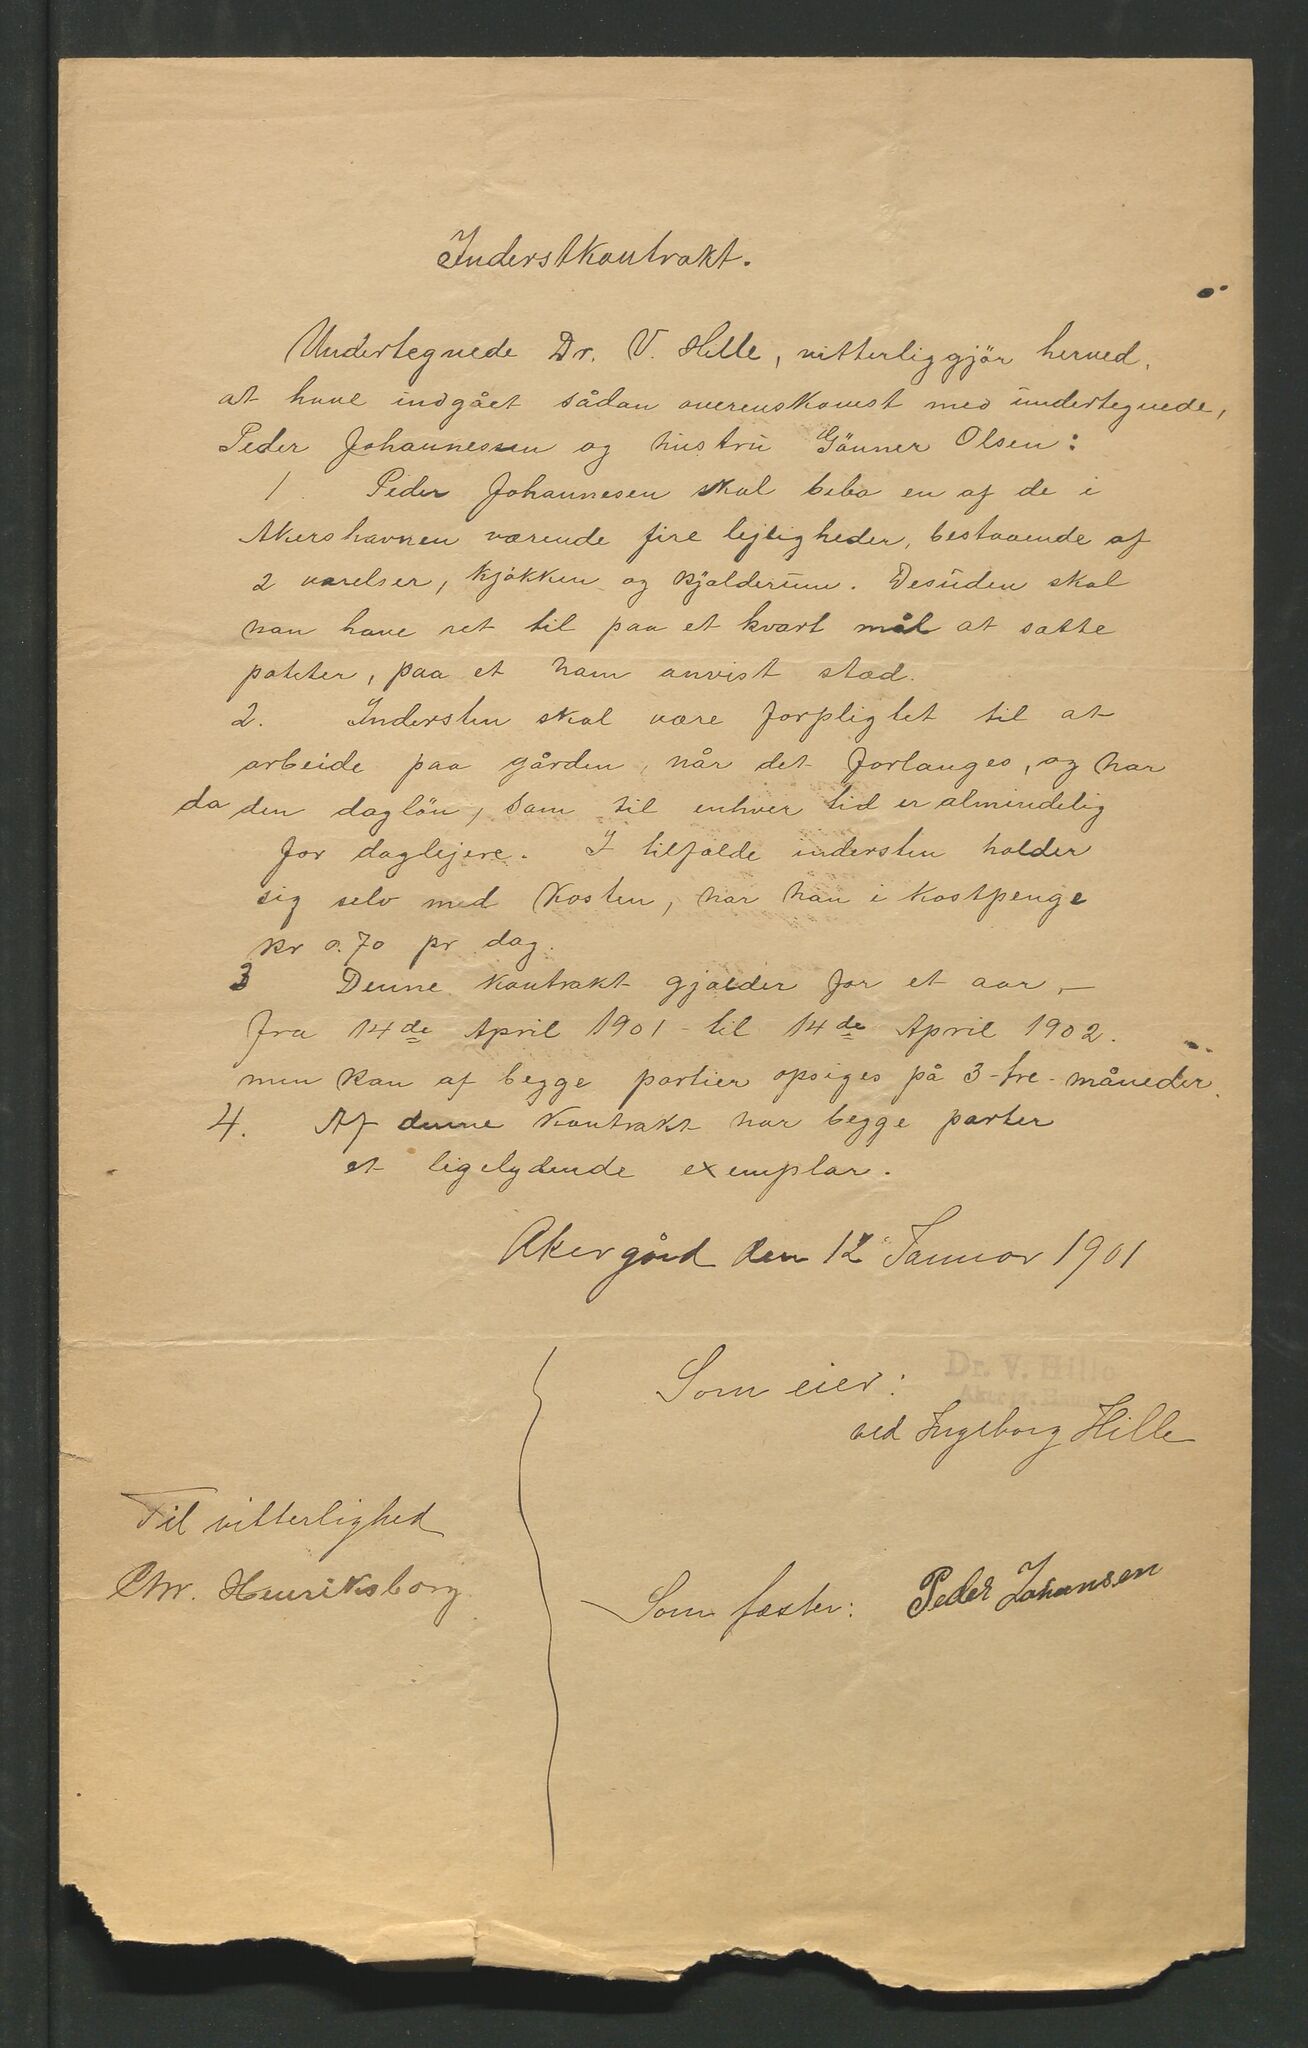 Inderstkontrakt.
Undertegnede Dr. V. Hille, vitterliggjör herved,
at have indgået sådan overenskomst med undertegnede,
Peder Johannessen og hustru Gönner Olsen:
1. Peder Johannesen skal bebo en af de i
Akershavnen værende fire lejligheder, bestaaende af
2 værelser, kjøkken og kjælderum. Desuden skal
han have ret til paa et kvart mål at sætte
poteter, paa et ham anvist sted.
2. Indersten skal være forpligtet til at
arbeide paa gården, når det forlanges, og har
da den daglön, som til enhver tid er almindelig
for daglejere. I tilfælde indersten holder
sig selv med kosten, har han i kostpenge
kr 0.70 pr dag.
3 Denne kontrakt gjælder for et aar, —
fra 14de April 1901 - til 14de April 1902.
men kan af begge partier opsiges på 3 - tre - måneder.
4. Af denne kontrakt har begge parter
et ligelydende exemplar.
Aker gård den 12 Januar 1901
Som eier: Dr. V. Hille
ved Ingeborg Hille
Til vitterlighed
Chr. Henriksborg
Som fæster: Peder Johansen